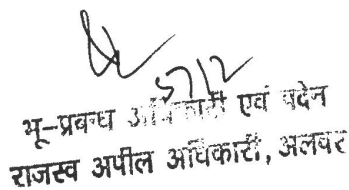 5712
भू-प्रबन्ध अधिकारी एवं पदेन
राजस्व अपील अधिकारी, अलवर